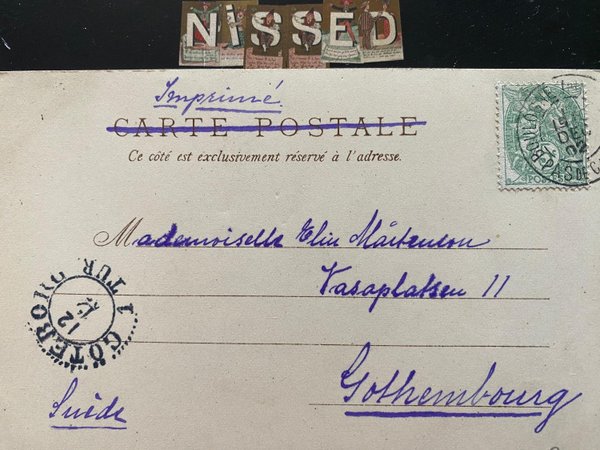 NiSSED
Imprimé
CARTE POSTALE
Ce côté est exclusivement réservé à l'adresse.
Mademoiselle Elin Mårtenson
Vasaplatsen 11
Gothembourg
Suède
GÖTEBORG
1 TUR
12
12